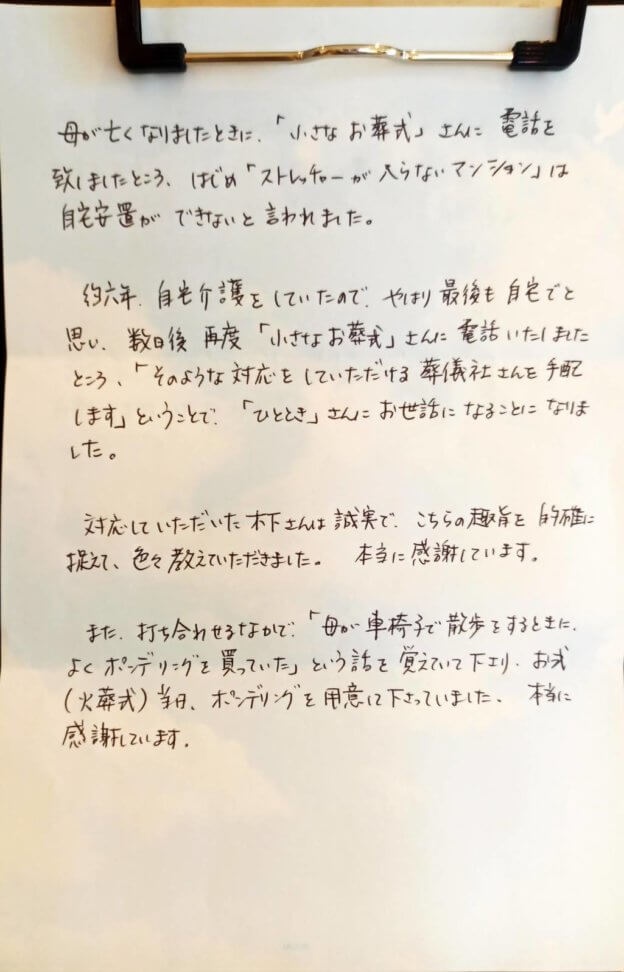 母が亡くなりましたときに、「小さなお葬式」さんに 電話を
致しましたところ、はじめ「ストレッチャーが入らないマンション」は
自宅安置ができないと言われました。
約六年、自宅介護をしていたので、やはり最後も自宅でと
思い、数日後 再度「小さなお葬式」さんに電話いたしました
ところ、「そのような対応をしていただける葬儀社さんを手配
します」ということで、「ひととき」さんにお世話になることになりま
した。
対応していただいた木下さんは誠実で、こちらの趣旨を的確に
捉えて、色々教えていただきました。 本当に感謝しています。
また、打ち合わせるなかで、「母が車椅子で散歩をするときに、
よくポンデリングを買っていた」という話を覚えていて下さり、お式
(火葬式)当日、ポンデリングを用意して下さっていました、 本当に
感謝しています。